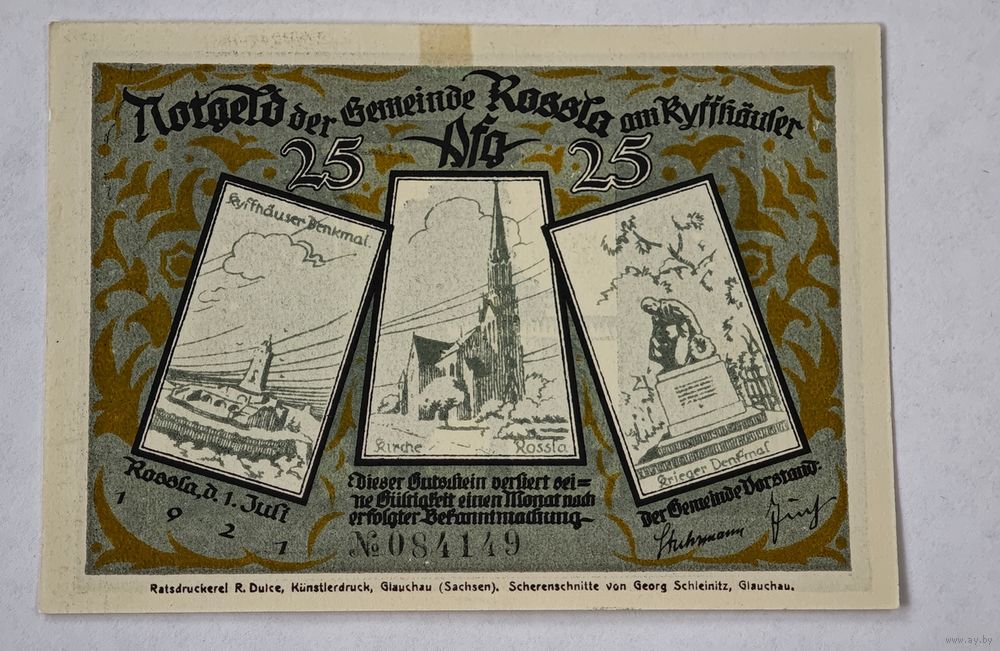 Notgeld der Gemeinde Rossla am Kyffhäuser
25 Pfg 25
Kyffhäuser Denkmal.
Kirche Rossla
Krieger Denkmal
Rossla, d. 1. Juli
1921
Dieser Gutschein verliert sei=
ne Gültigkeit einen Monat nach
erfolgter Bekanntmachung
№ 084149
Der Gemeinde Vorstand:
Ratsdruckerei R. Dulce, Künstlerdruck, Glauchau (Sachsen). Scherenschnitte von Georg Schleinitz, Glauchau.
www.ay.by